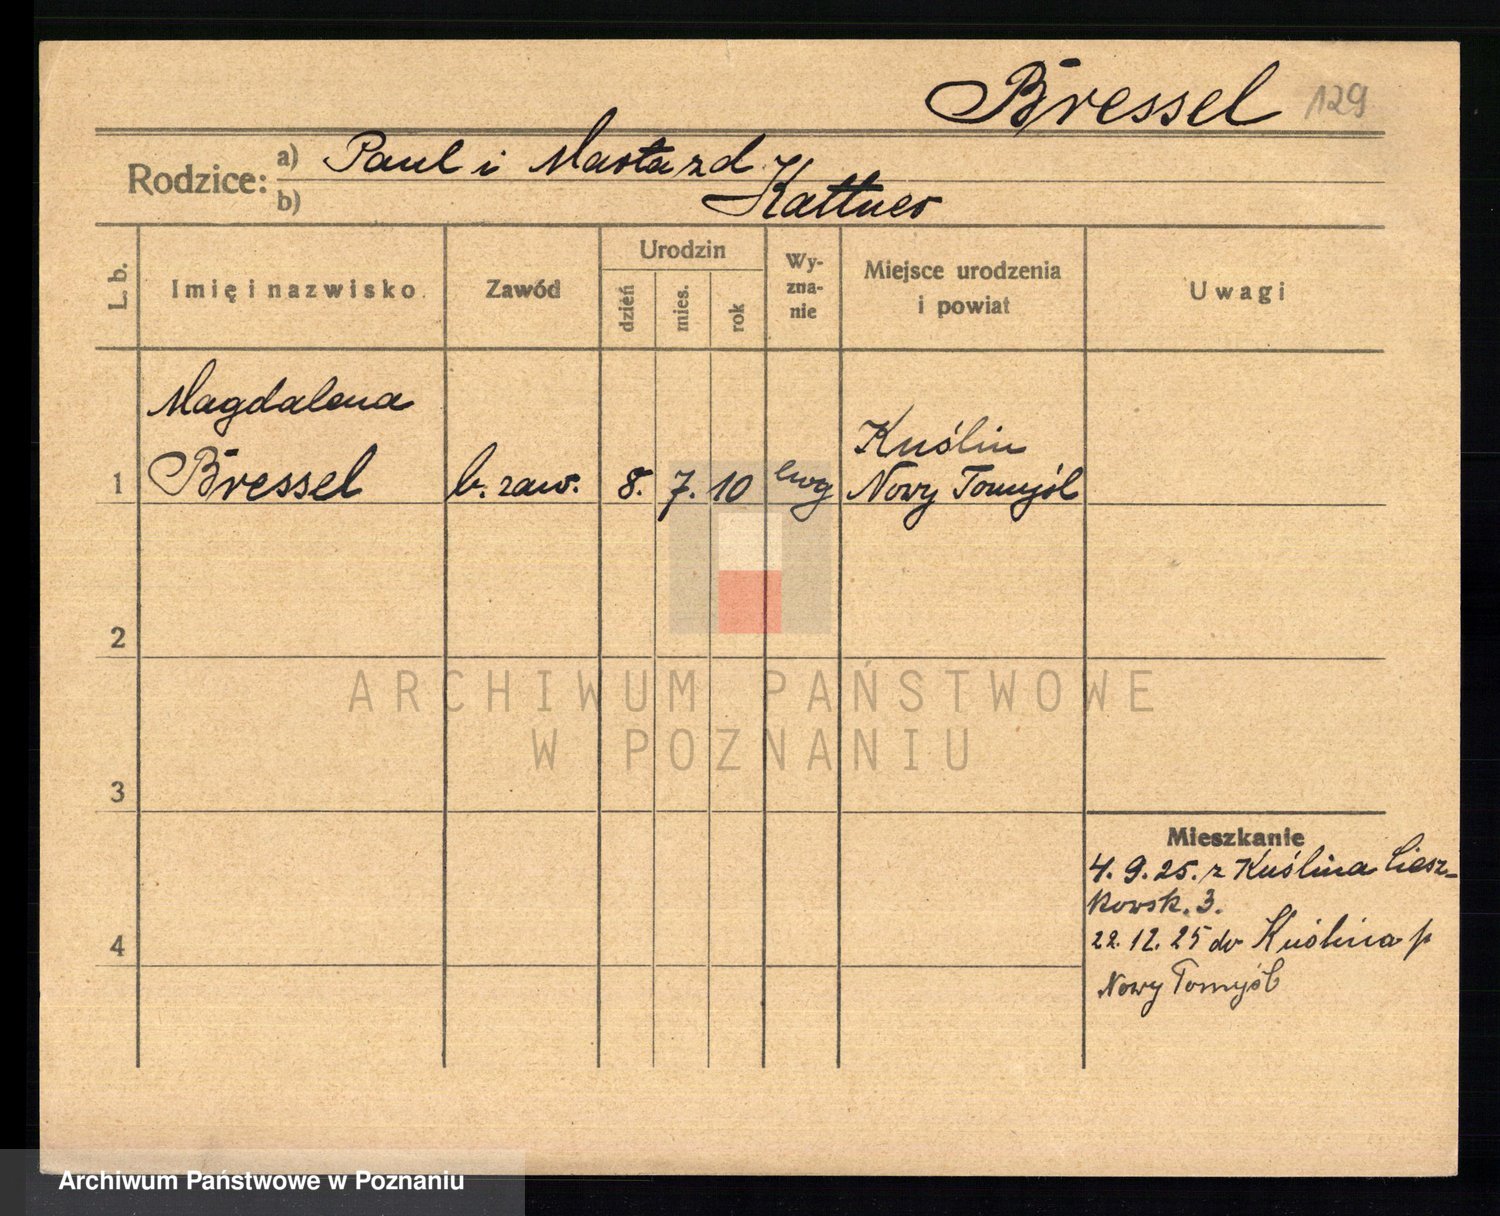 Bressel 129
Rodzice: a) Paul i Marta z d.
b) Kattner
L. b.
Imię i nazwisko
Zawód
Urodzin
dzień
mies.
rok
Wy-
zna-
nie
Miejsce urodzenia
i powiat
Uwagi
Magdalena
1 Bressel b. zaw. 8. 7. 10 ewg Kuślin
Nowy Tomyśl
2
3
4
Mieszkanie
4. 9. 25. z Kuślina Ciesz-
kowsk. 3.
22. 12. 25 do Kuślina p
Nowy Tomyśl
ARCHIWUM PAŃSTWOWE
W POZNANIU
Archiwum Państwowe w Poznaniu